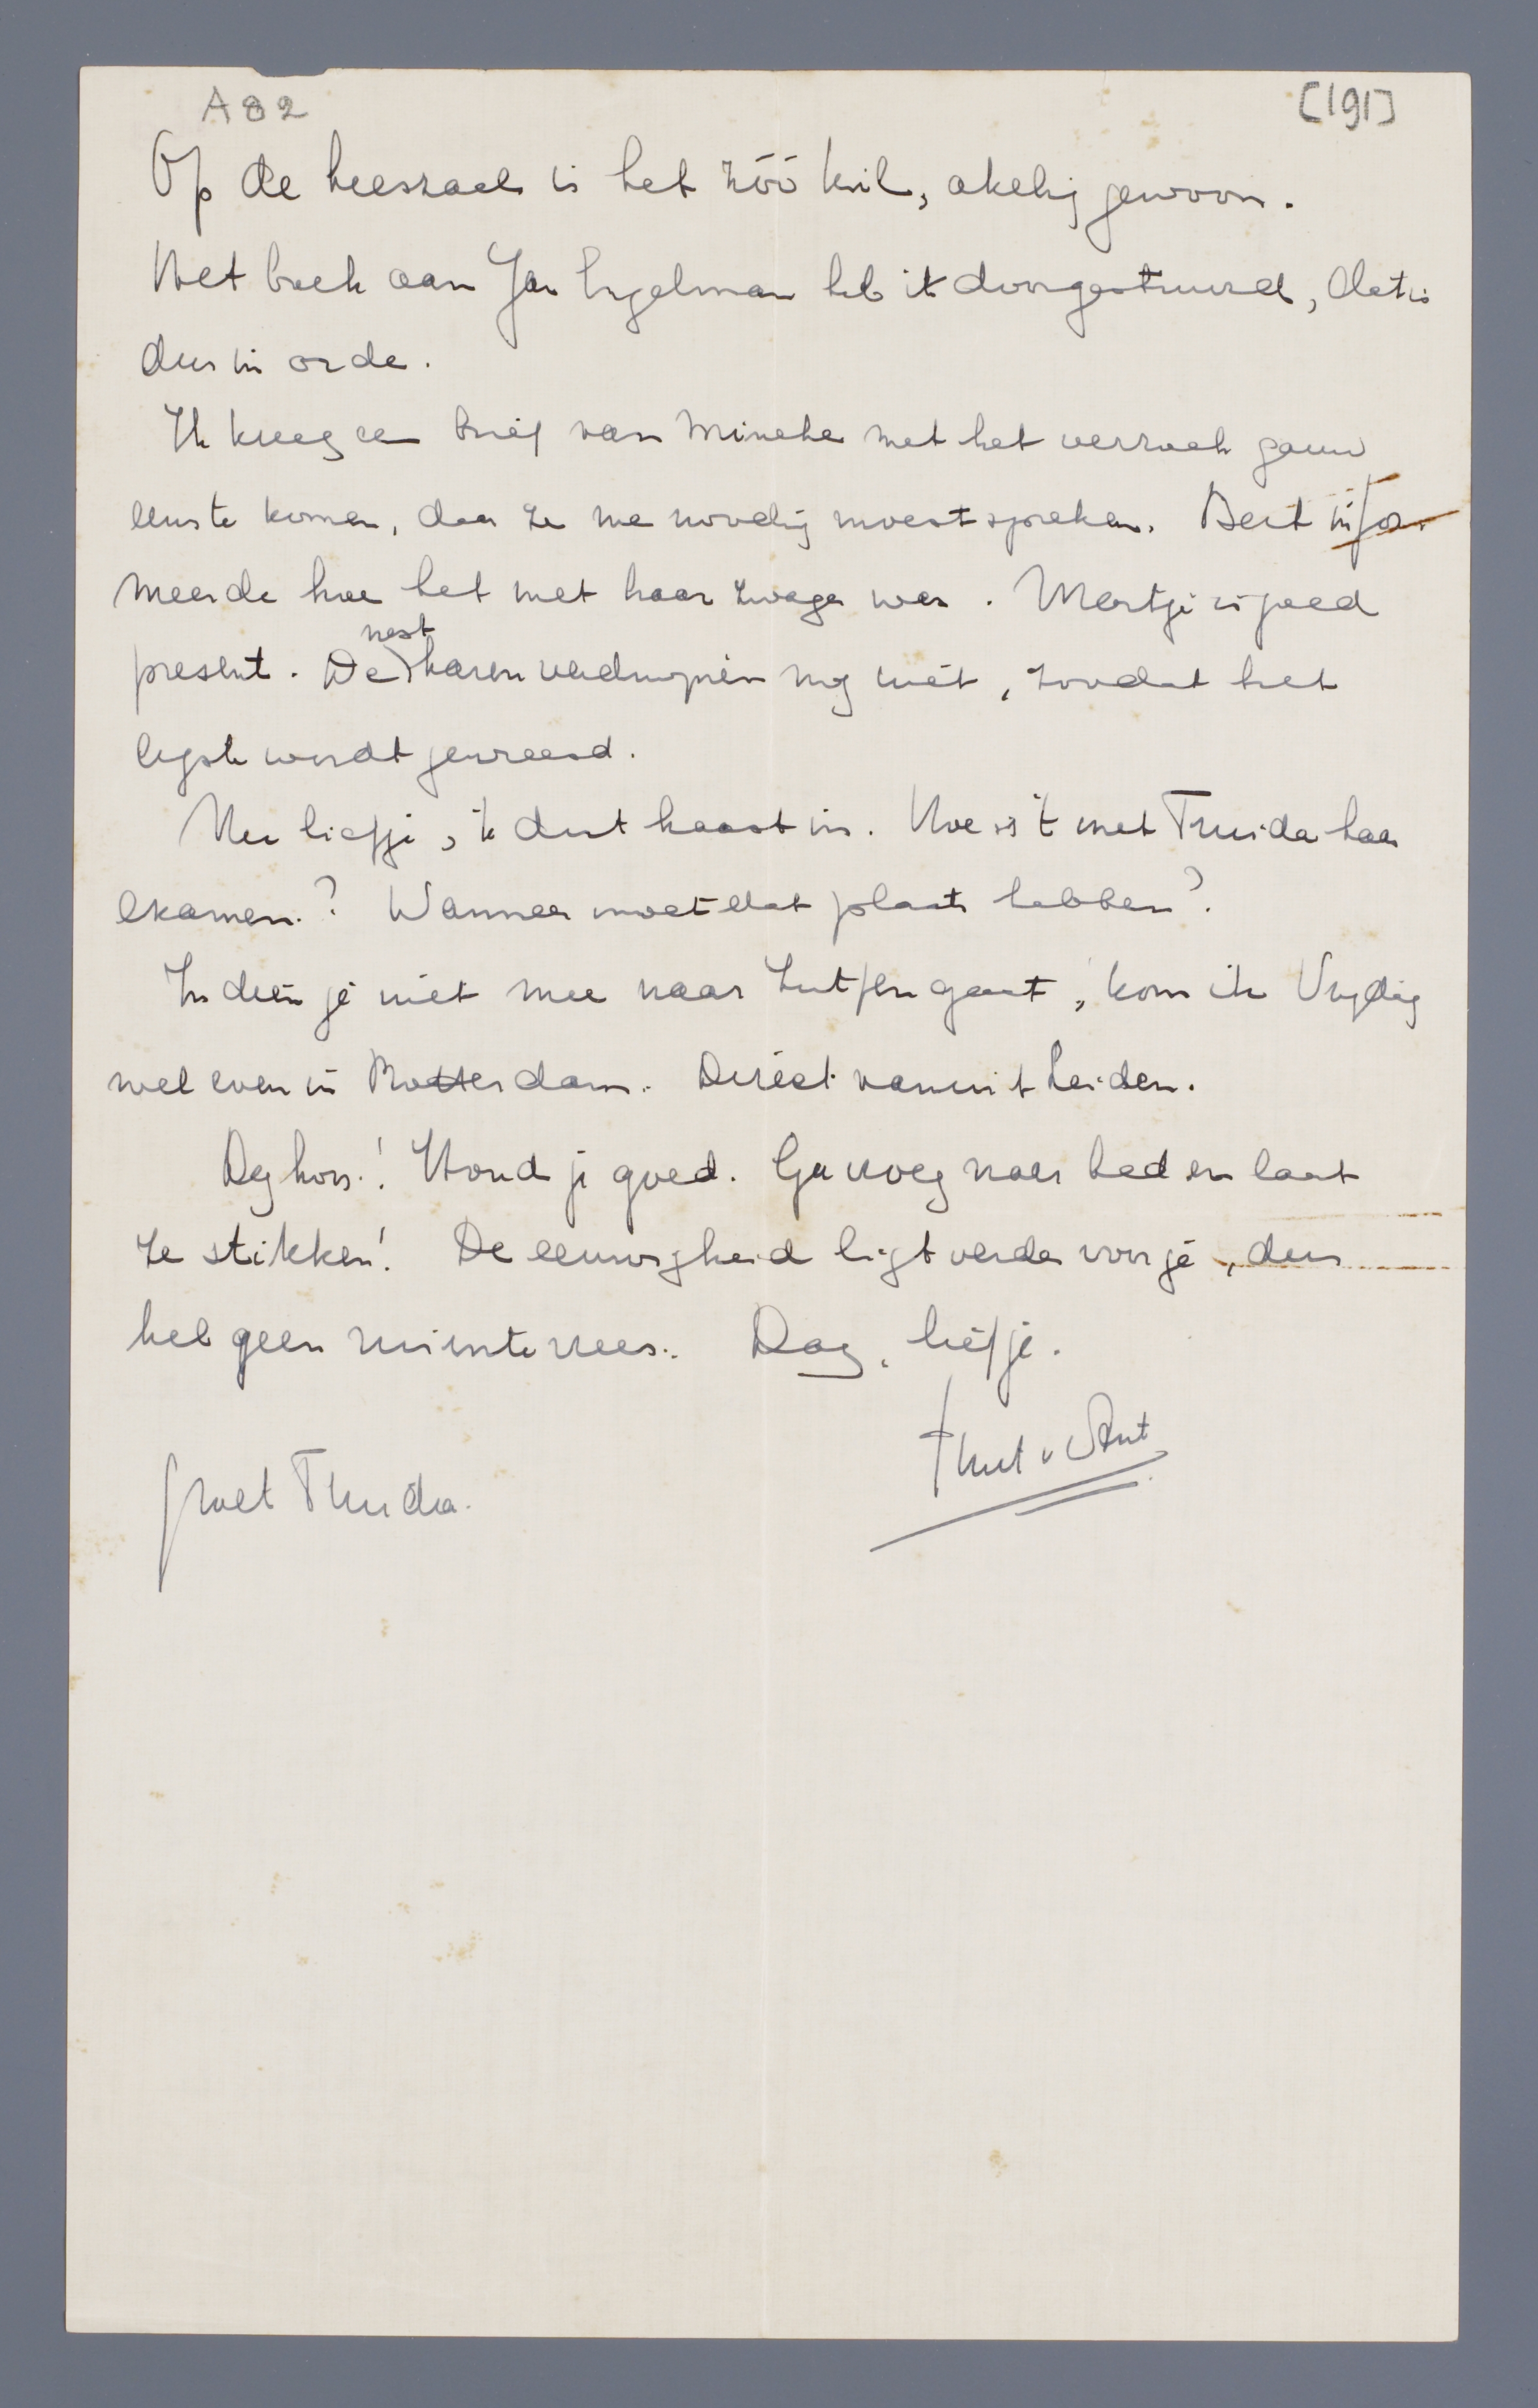 A82 [191]
Op de leeszaal is het zóó kil, akelig gewoon.
Het boek aan Jan Engelman heb ik doorgestuurd, dat is
dus in orde.
Ik kreeg een brief van Mineke met het verzoek gauw
eens te komen, daar ze me noodig moest spreken. Bert infor-
meerde hoe het met haar zwager was. Maartje is goed
present. De nestharen verdwijnen nog niet, zoodat het
ergste wordt gevreesd.
Nu liefje, ik dut haast in. Hoe is 't met Truida haar
examen? Wanneer moet dat plaats hebben?
Indien je niet mee naar Zutfen gaat, kom ik Vrijdag
wel even in Rotterdam. Direct vanuit Leiden.
Dag hoor! Houd je goed. Ga vroeg naar bed en laat
ze stikken! De eeuwigheid ligt verder voor je, dus
heb geen ruimtevrees. Dag, liefje.
t.
Groet Truida.